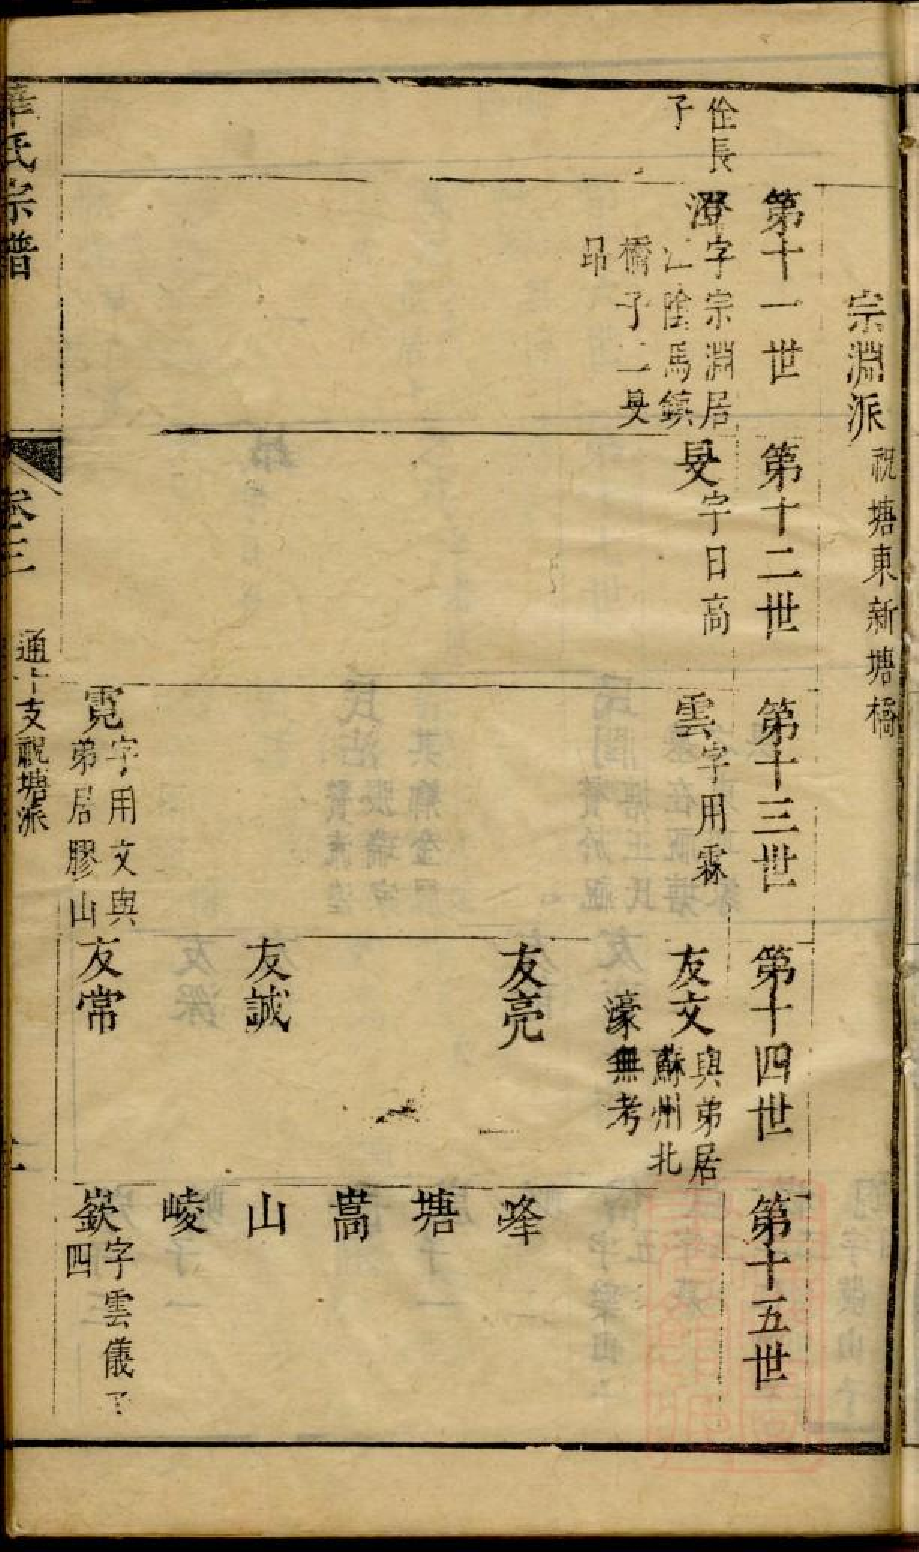 宗淵派 祝塘東新塘橋
第十一世
佺長
子
澄 字宗淵居
江陰馬鎮
橋子二旻
昂
第十二世
旻 字日高
第十三世
雲 字用霖
霓 字用文與
弟居膠山
第十四世
友文 與弟居
蘇州北
濠無考
友亮
友誠
友常
第十五世
峰
塘
嵩
山
崚
嶔 字雲儀子
四
華氏宗譜
卷三
通十支祝塘派